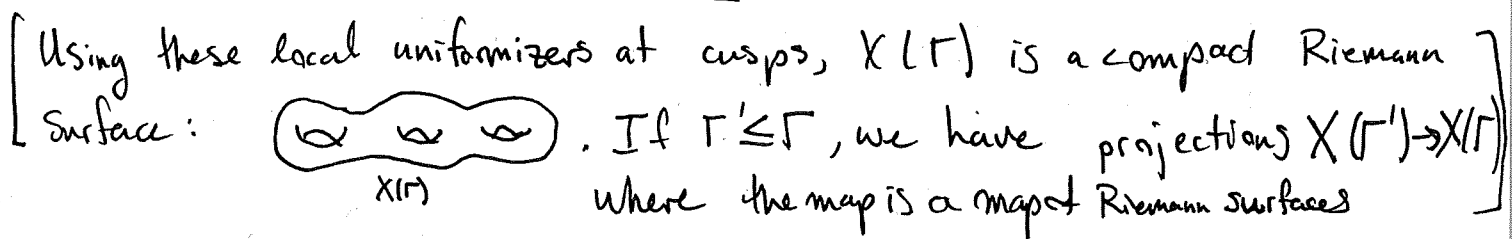 [Using these local uniformizers at cusps, X(Γ) is a compact Riemann
Surface: . If Γ'≤Γ, we have projections X(Γ')→X(Γ)
X(Γ) where the map is a map of Riemann surfaces]